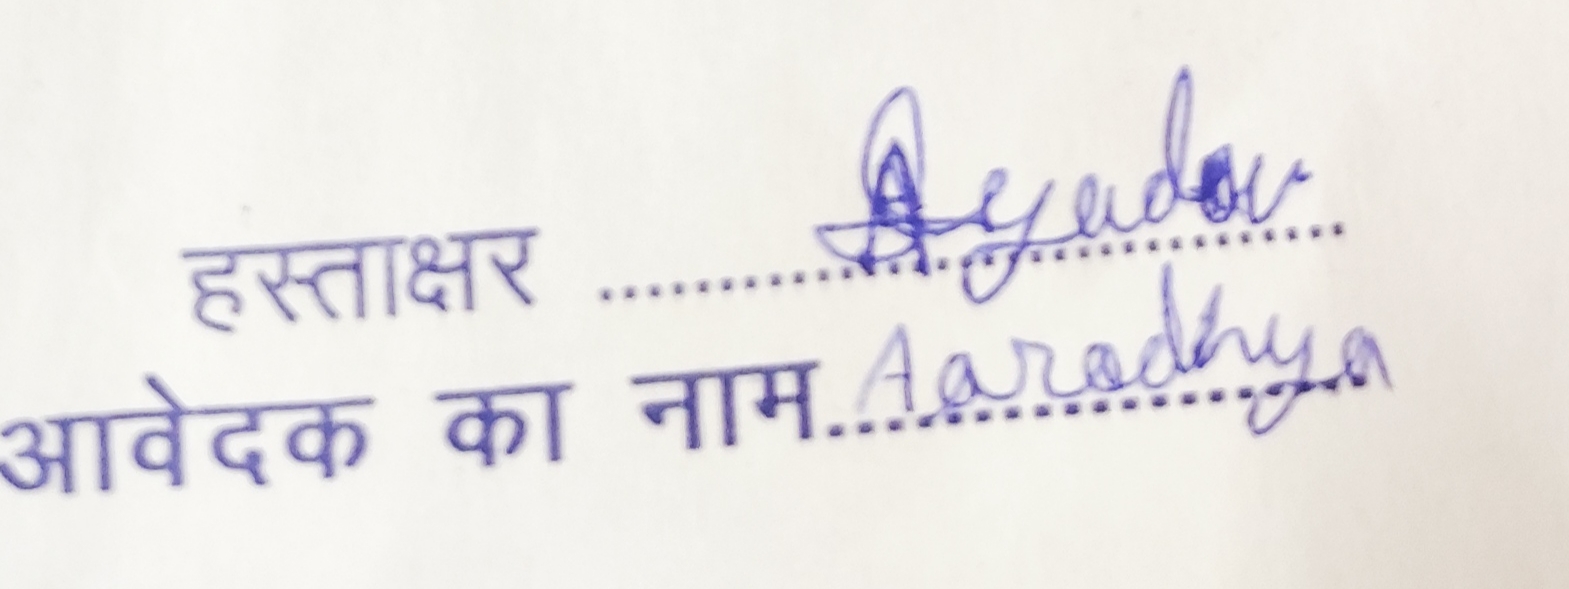 हस्ताक्षर .................... Ayadav
आवेदक का नाम.................... Aaradhya